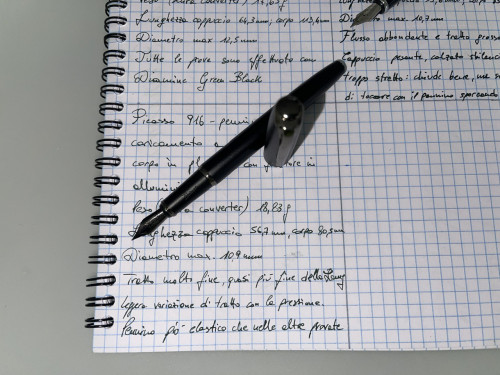 Lunghezza cappuccio 64,3 mm, corpo 113,4 mm
Diametro max 12,5 mm
Tutte le prove sono effettuate con
Diamine Green Black
Picasso 916 - pennino
caricamento a
corpo in con in
alluminio
Peso converter) 18,23 g
Lunghezza cappuccio 56,7 mm, corpo
Diametro max. 10,9 mm
Tratto molto fine, quasi più fine della Lamy
leggera variazione di tratto con la pressione.
Pennino più elastico che nelle altre provate
Diametro max. 10,7 mm
Flusso abbondante e tratto grosso
Cappuccio pesante, calzato
troppo stretto: chiude bene, ma
di toccare con il pennino sporcando